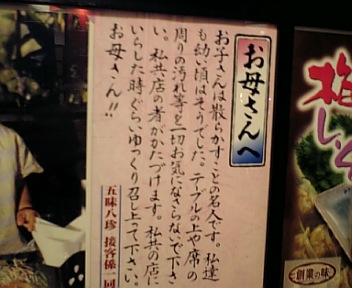 お母さんへ
お子さんは散らかすことの名人です。私達
も幼い頃はそうでした。テーブルの上や席の
周りの汚れ等を一切お気になさらないで下さ
い。私共店の者がかたづけます。私共の店に
いらした時ぐらいゆっくり召し上って下さい。
お母さん!!
五味八珍 接客係一同
梅しそ
創業の味